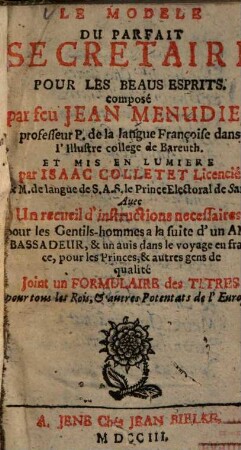 LE MODELE
DU PARFAIT
SECRETAIRE
POUR LES BEAUS ESPRITS,
composé
par feu JEAN MENUDIE
professeur P. de la langue Françoise dans
l'Illustre college de Bareuth.
ET MIS EN LUMIERE
par ISAAC COLLETET Licencié
& M. de langue de S. A. S. le Prince Electoral de Sa
Avec
Un recueil d'instructions necessaires
pour les Gentils-hommes a la suite d'un AM
BASSADEUR, & un avis dans le voyage en fra
ce, pour les Princes, & autres gens de
qualité
Joint un FORMULAIRE des TITRES
pour tous les Rois, & autres Potentats de l'Euro
A JENE Chez JEAN BIELKE
MDCCIII.